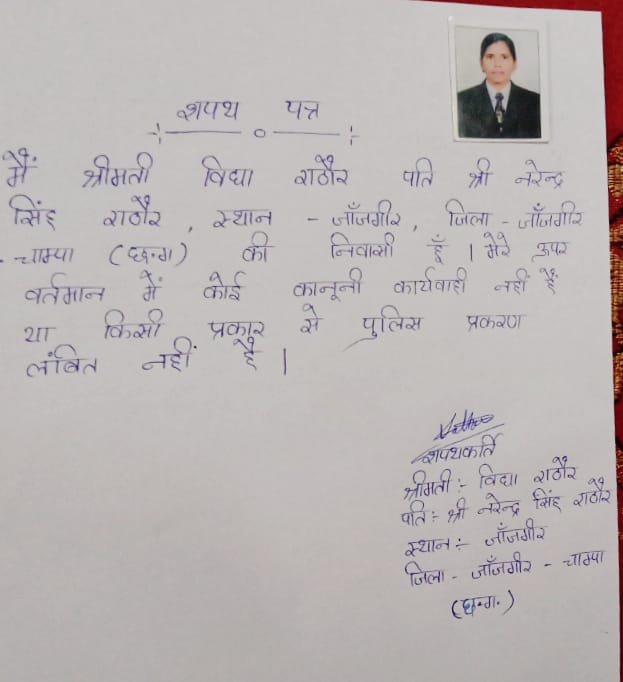 शपथ पत्र
मैं श्रीमती विद्या राठौर पति श्री नरेन्द्र
सिंह राठौर, स्थान - जाँजगीर, जिला - जाँजगीर
- चाम्पा (छ.ग) की निवासी हूँ । मेरे ऊपर
वर्तमान में कोई कानूनी कार्यवाही नहीं हैं
या किसी प्रकार से पुलिस प्रकरण
लंबित नहीं है ।
शपथकर्ति
श्रीमती :- विद्या राठौर
पति :- श्री नरेन्द्र सिंह राठौर
स्थान :- जाँजगीर
जिला - जाँजगीर - चाम्पा
(छ.ग.)